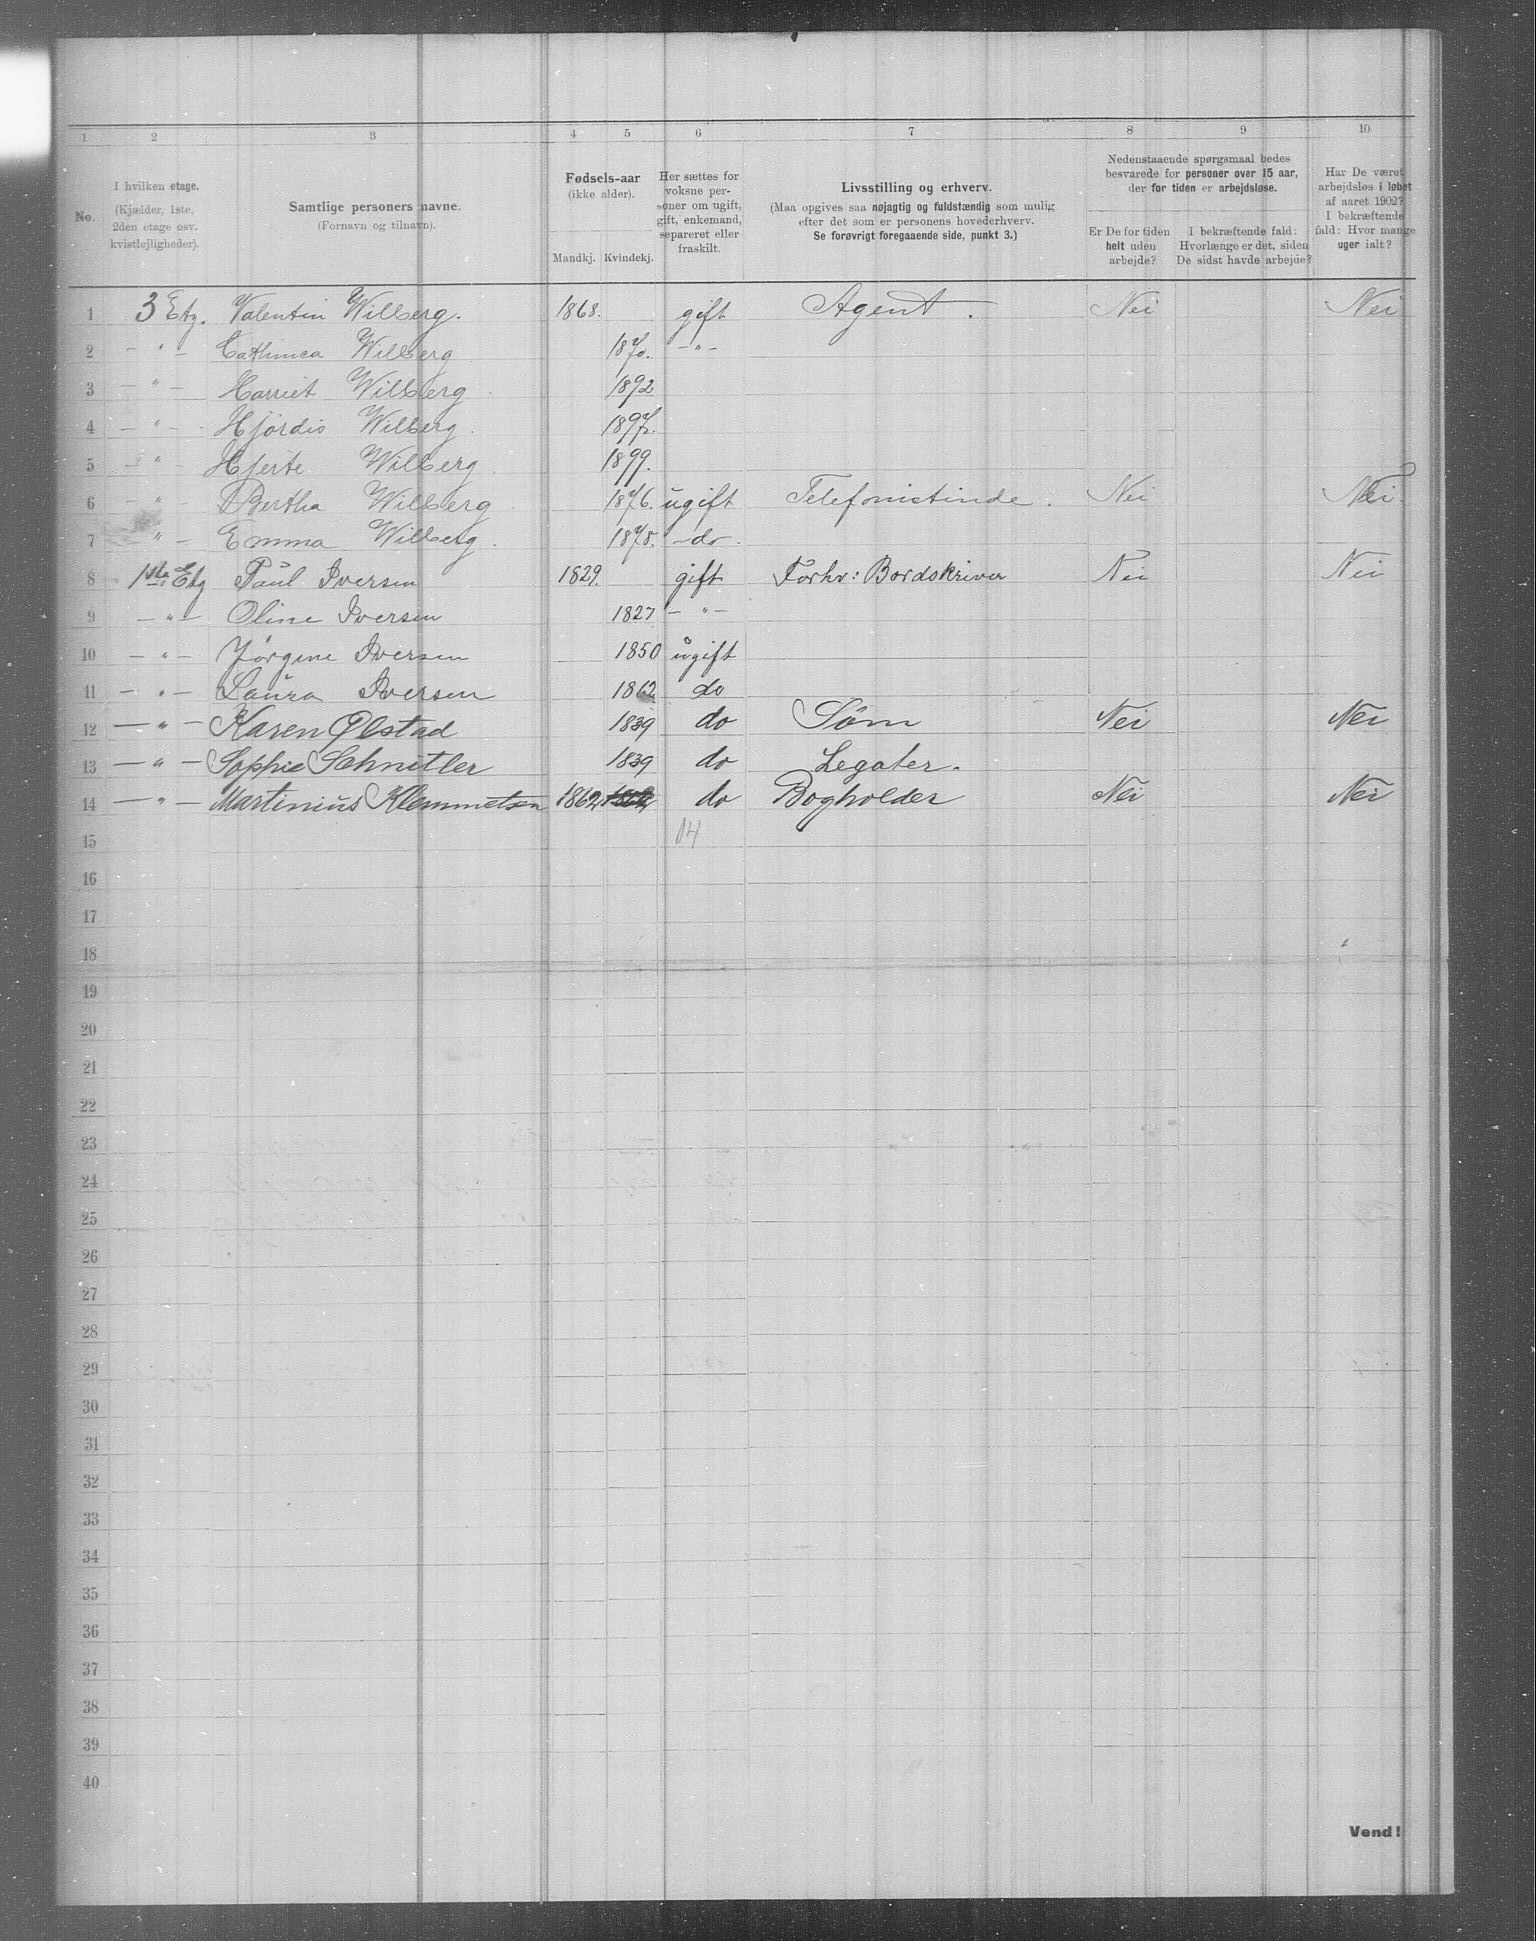 1 2 3 4 5 6 7 8 9 10
No.
I hvilken etage.
(Kjælder, 1ste,
2den etage osv.
kvistlejligheder).
Samtlige personers navne.
(Fornavn og tilnavn).
Fødsels-aar
(ikke alder).
Mandkj. Kvindekj.
Her sættes for
voksne per-
soner om ugift,
gift, enkemand,
separeret eller
fraskilt.
Livsstilling og erhverv.
(Maa opgives saa nøjagtig og fuldstændig som mulig
efter det som er personens hovederhverv.
Se forøvrigt foregaaende side, punkt 3.)
Nedenstaaende spørgsmaal bedes
besvarede for personer over 15 aar,
der for tiden er arbejdsløse.
Er De for tiden
helt uden
arbejde?
I bekræftende fald:
Hvorlænge er det, siden
De sidst havde arbejde?
Har De været
arbejdsløs i løbet
af aaret 1902?
I bekræftende
fald: Hvor mange
uger ialt?
1 3 Etg. Valentin Wilberg. 1868. gift Agent. Nei Nei
2 - " - Cathinca Wilberg 1870. - " -
3 - " - Harriet Wilberg. 1892
4 - " - Hjördis Wilberg. 1897.
5 - " - Hjerte Wilberg. 1899.
6 - " - Bertha Wilberg. 1876. ugift Telefonistinde. Nei Nei.
7 - " - Emma Wilberg. 1878. - do.
8 1ste Etg Paul Iversen 1829. gift Forhv: Bordskriver Nei Nei
9 - " - Oline Iversen 1827 - " -
10 - " - Jørgine Iversen 1850 ugift
11 - " - Laura Iversen 1862 do
12 - " - Karen Ølstad 1839 do Søm Nei Nei
13 - " - Sophie Schnitler 1839 do Legater.
14 - " - Martinius Klemmetsen 1862 do Bogholder Nei Nei
15 14
16
17
18
19
20
21
22
23
24
25
26
27
28
29
30
31
32
33
34
35
36
37
38
39
40
Vend!